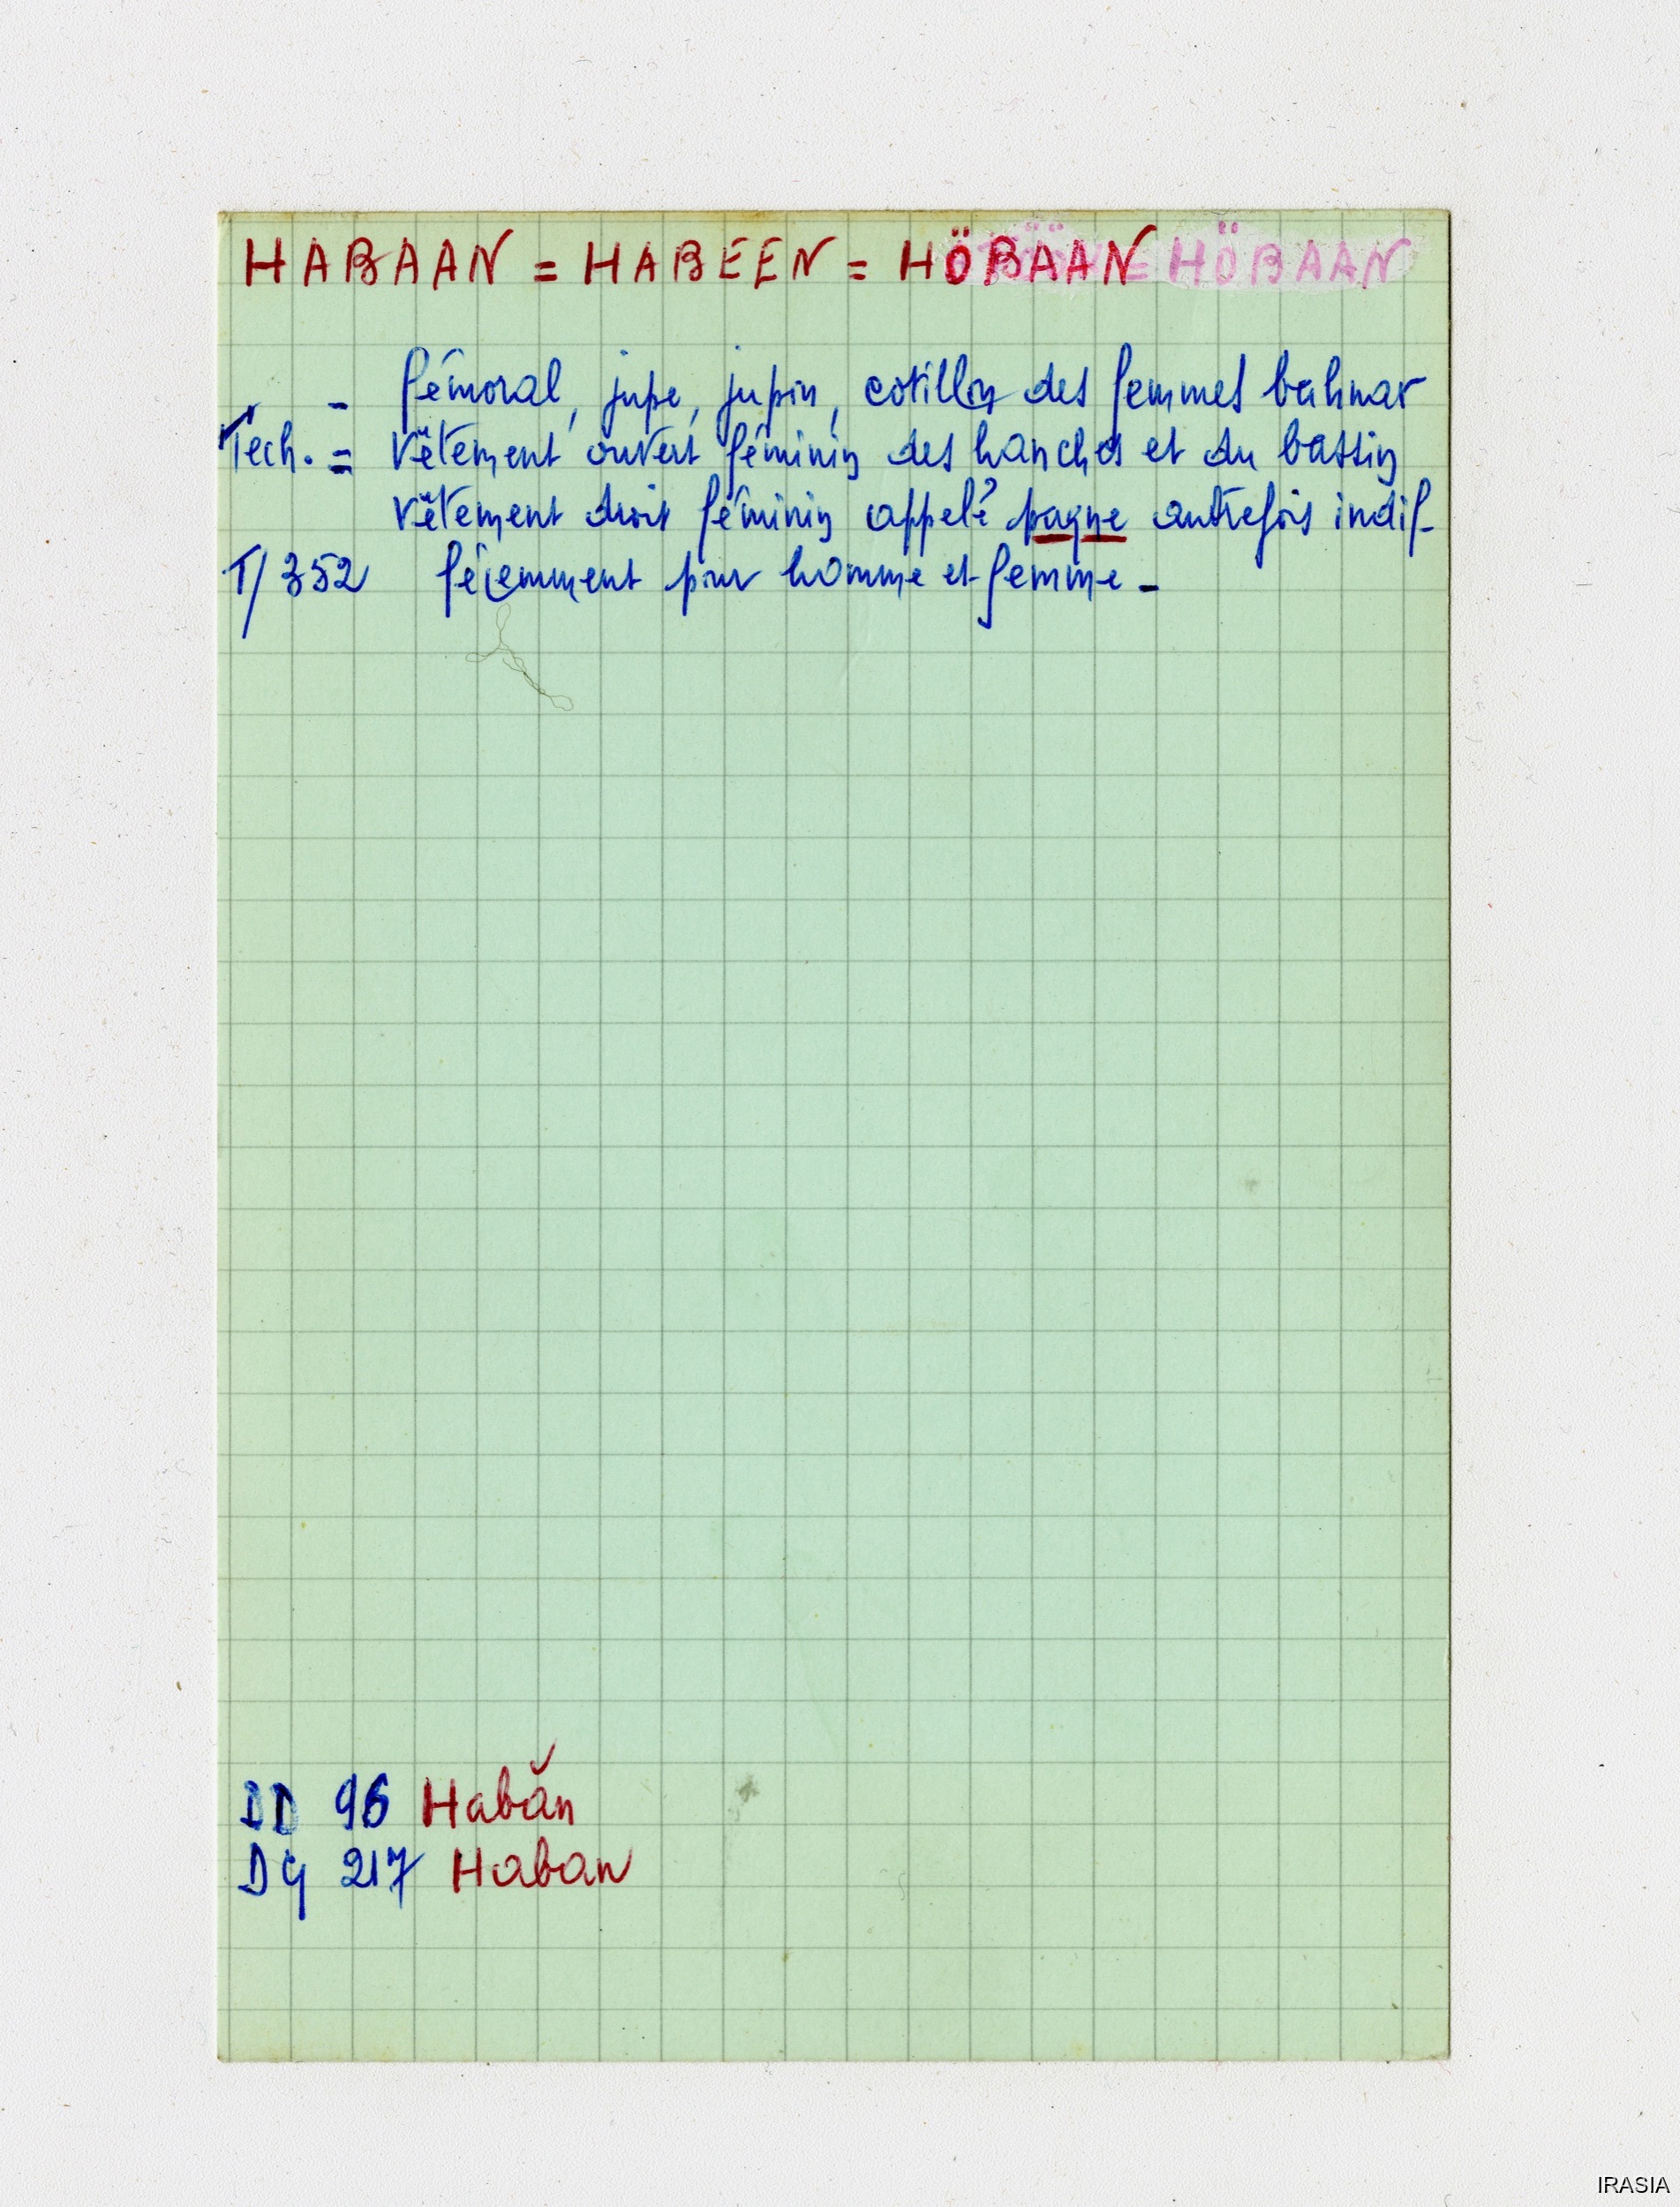 HABAAN = HABEEN = HÖBAAN HÖBAAN
- fémoral, jupe, jupin, cotillon des femmes bahnar
Tech. = Vêtement ouvert féminin des hanches et du bassin
vêtement droit féminin appelé pagne autrefois indif-
T/352 féremment pour homme et femme -
DD 96 Habăn
DG 217 Haban
IRASIA